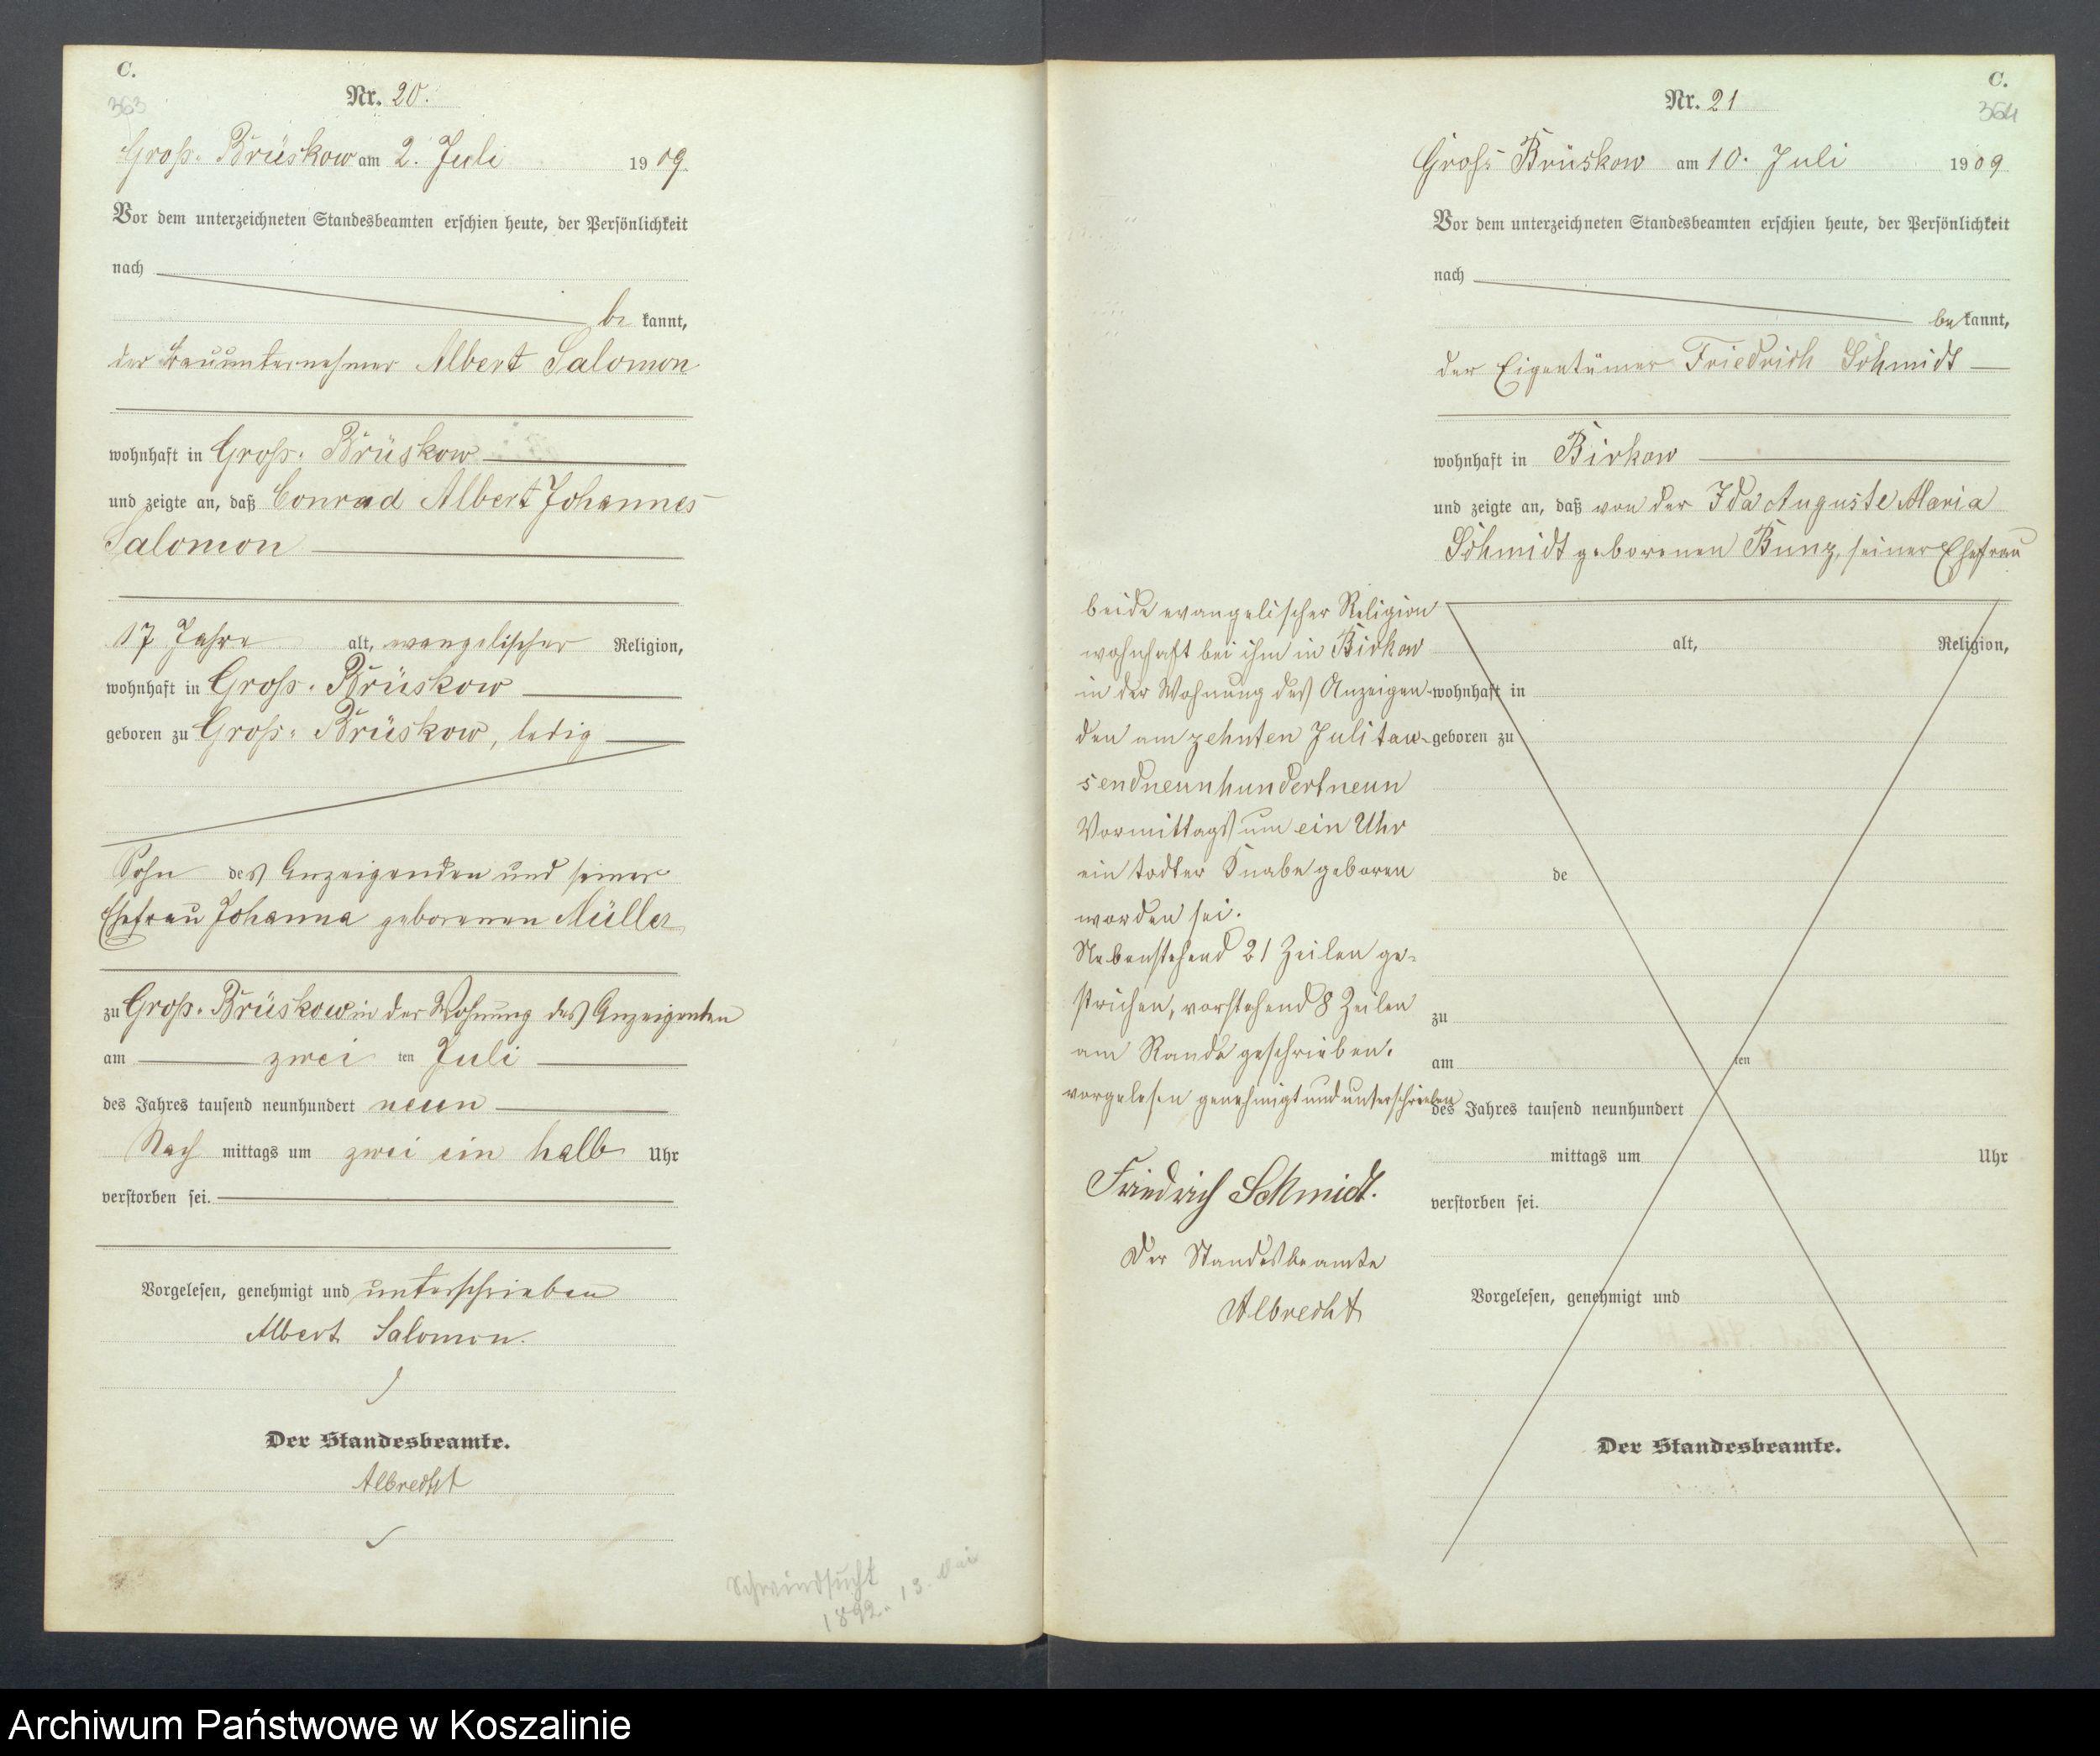 C.
363
Nr. 20.
Groß-Brüskow am 2. Juli 1909
Vor dem unterzeichneten Standesbeamten erschien heute, der Persönlichkeit
nach
be kannt,
der Bauunternehmer Albert Salomon
wohnhaft in Groß-Brüskow
und zeigte an, daß Conrad Albert Johannes
Salomon
17 Jahre alt, evangelischer Religion,
wohnhaft in Groß-Brüskow
geboren zu Groß-Brüskow, ledig
Sohn des Anzeigenden und seiner
Ehefrau Johanna geborenen Müller
zu Groß-Brüskow in der Wohnung des Anzeigenden
am zwei ten Juli
des Jahres tausend neunhundert neun
Nach mittags um zwei ein halb Uhr
verstorben sei.
Vorgelesen, genehmigt und unterschrieben
Albert Salomon.
Der Standesbeamte.
Albrecht
Schwindsucht
1892. 13. Mai
C.
364
Nr. 21
Groß Brüskow am 10. Juli 1909
Vor dem unterzeichneten Standesbeamten erschien heute, der Persönlichkeit
nach
be kannt,
der Eigentümer Friedrich Schmidt
wohnhaft in Birkow
und zeigte an, daß von der Ida Auguste Maria
Schmidt geborenen Bunz, seiner Ehefrau
beide evangelischer Religion
wohnhaft bei ihm in Birkow
in der Wohnung des Anzeigen-
den am zehnten Juli tau-
sendneunhundertneun
Vormittags um ein Uhr
ein todter Knabe geboren
worden sei.
Nebenstehend 21 Zeilen ge-
strichen, vorstehend 8 Zeilen
am Rande geschrieben.
vorgelesen genehmigt und unterschrieben
Friedrich Schmidt.
Der Standesbeamte
Albrecht
alt, Religion,
wohnhaft in
geboren zu
de
zu
am ten
des Jahres tausend neunhundert
mittags um Uhr
verstorben sei.
Vorgelesen, genehmigt und
Der Standesbeamte.
Archiwum Państwowe w Koszalinie